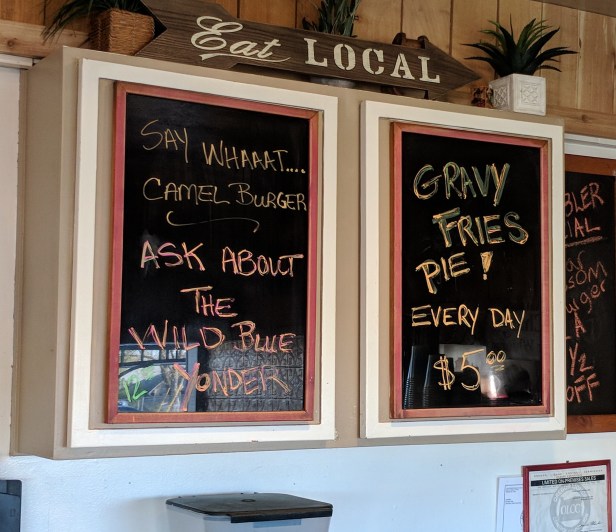 Eat LOCAL
SAY WHAAAT....
CAMEL BURGER
ASK ABOUT
THE
WILD BLUE
YONDER
GRAVY
FRIES
PIE!
EVERY DAY
$5.00
BLER
IAL
OFF
LIMITED ON-PREMISES SALES
OLCC